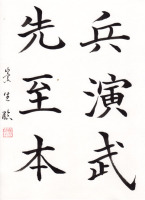 兵演武
先至本